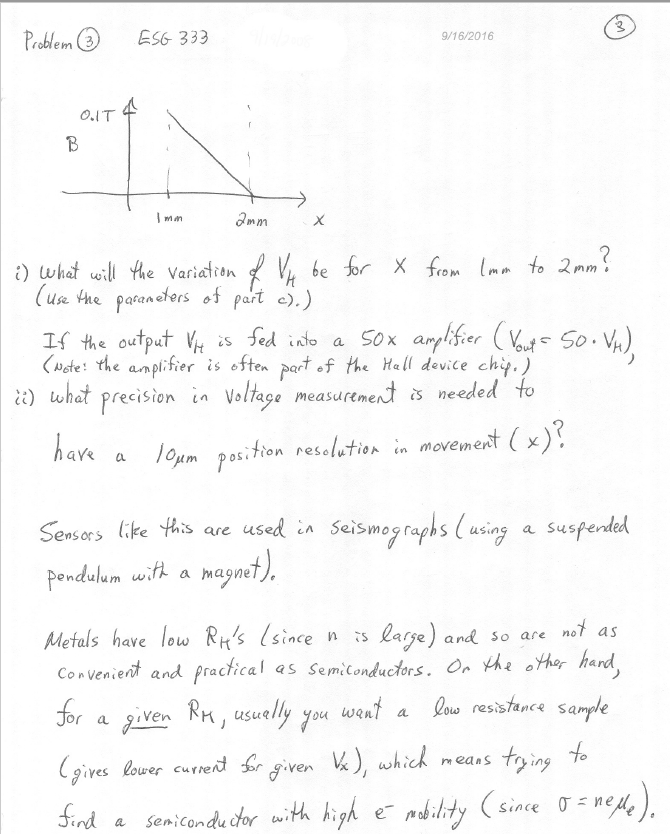 Problem ③ ESG 333 9/16/2016 ③
0.1T
B
1mm 2mm x
i) What will the variation of V_H be for x from 1mm to 2mm?
(Use the parameters of part c).)
If the output V_H is fed into a 50x amplifier (V_out = 50·V_H),
(Note: the amplifier is often part of the Hall device chip.)
ii) what precision in voltage measurement is needed to
have a 10μm position resolution in movement (x)?
Sensors like this are used in seismographs (using a suspended
pendulum with a magnet).
Metals have low R_H's (since n is large) and so are not as
convenient and practical as semiconductors. On the other hand,
for a given R_H, usually you want a low resistance sample
(gives lower current for given V_x), which means trying to
find a semiconductor with high e⁻ mobility (since σ = neμ_e).